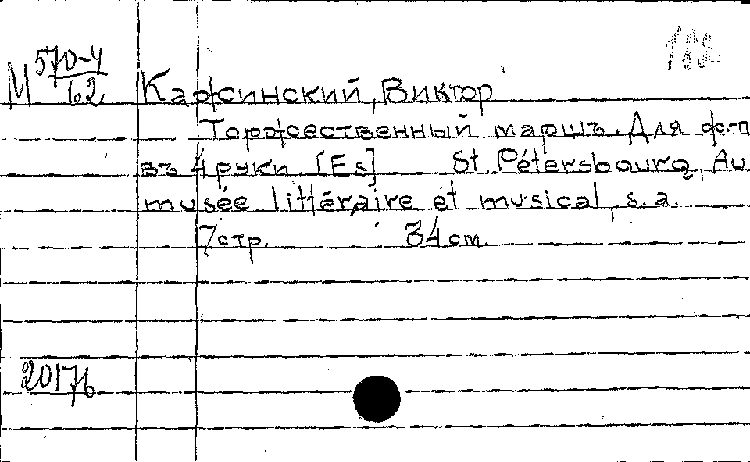 М 570-4/62
Кажинский, Виктор
Торжественный маршъ. Для ф-п
въ 4 руки [Es] St. Pétersbourg, Au
musée littéraire et musical, s.a.
7 стр. 34 cm.